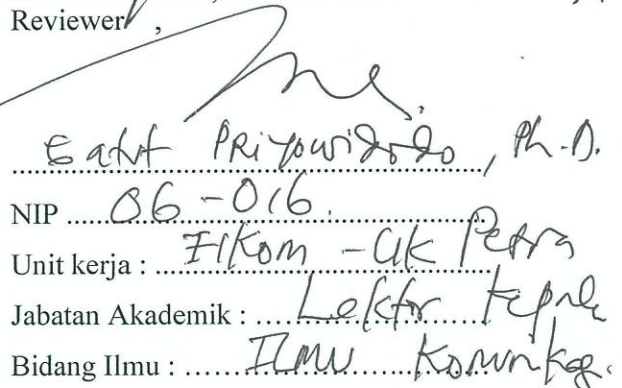 Reviewer ,
Gatut Priyowidodo, Ph.D.
NIP 06-016.
Unit kerja : Fikom - UK Petra
Jabatan Akademik : Lektor Kepala
Bidang Ilmu : Ilmu Komunikasi.